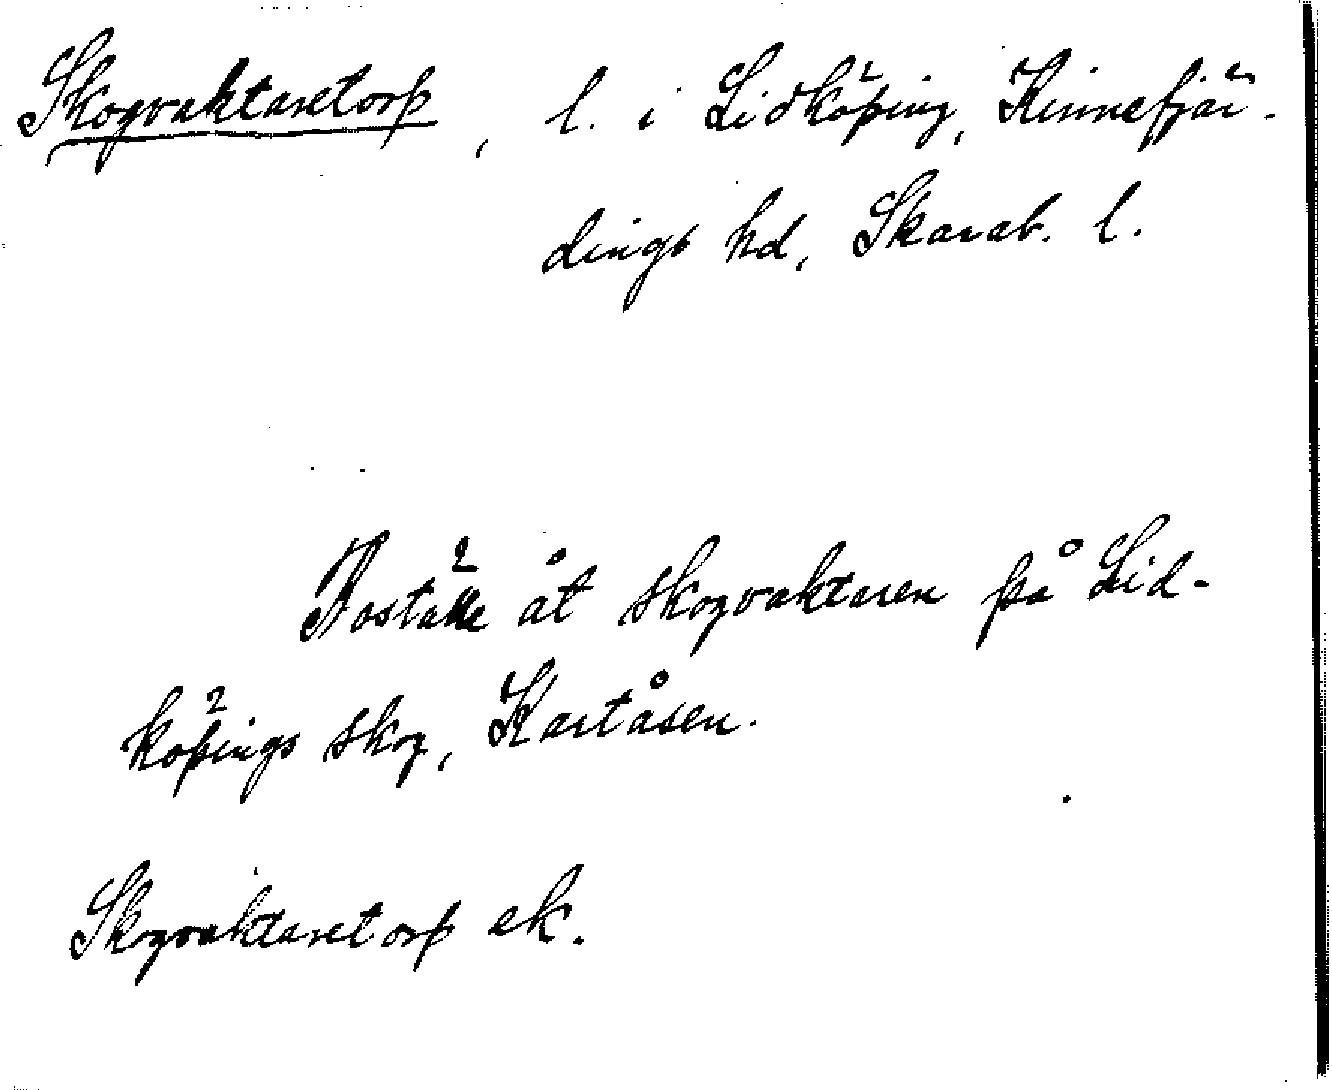 Skogvaktaretorp, l. i Lidköping, Kinnefjär-
dings hd, Skarab. l.
Boställe åt skogvaktaren på Lid-
köpings skog, Kartåsen.
Skogvaktaretorp ek.